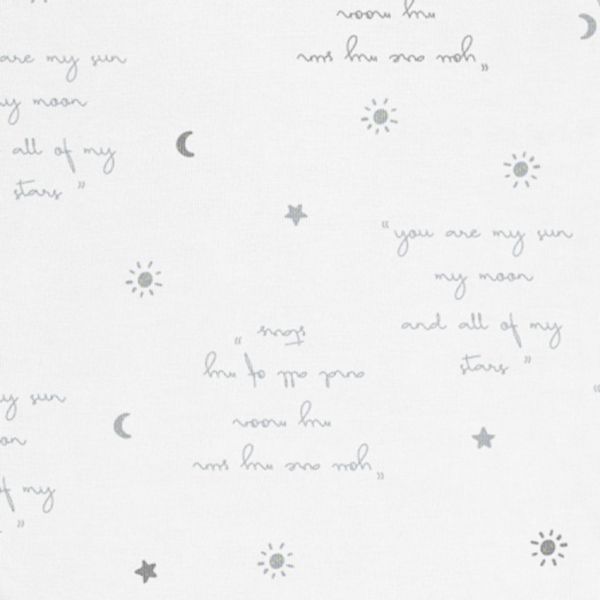 my moon
"you are my sun
are my sun
my moon
all of my
stars"
"you are my sun
my moon
and all of my
stars"
"you are my sun
my moon
and all of my
stars"
my sun
of my
"